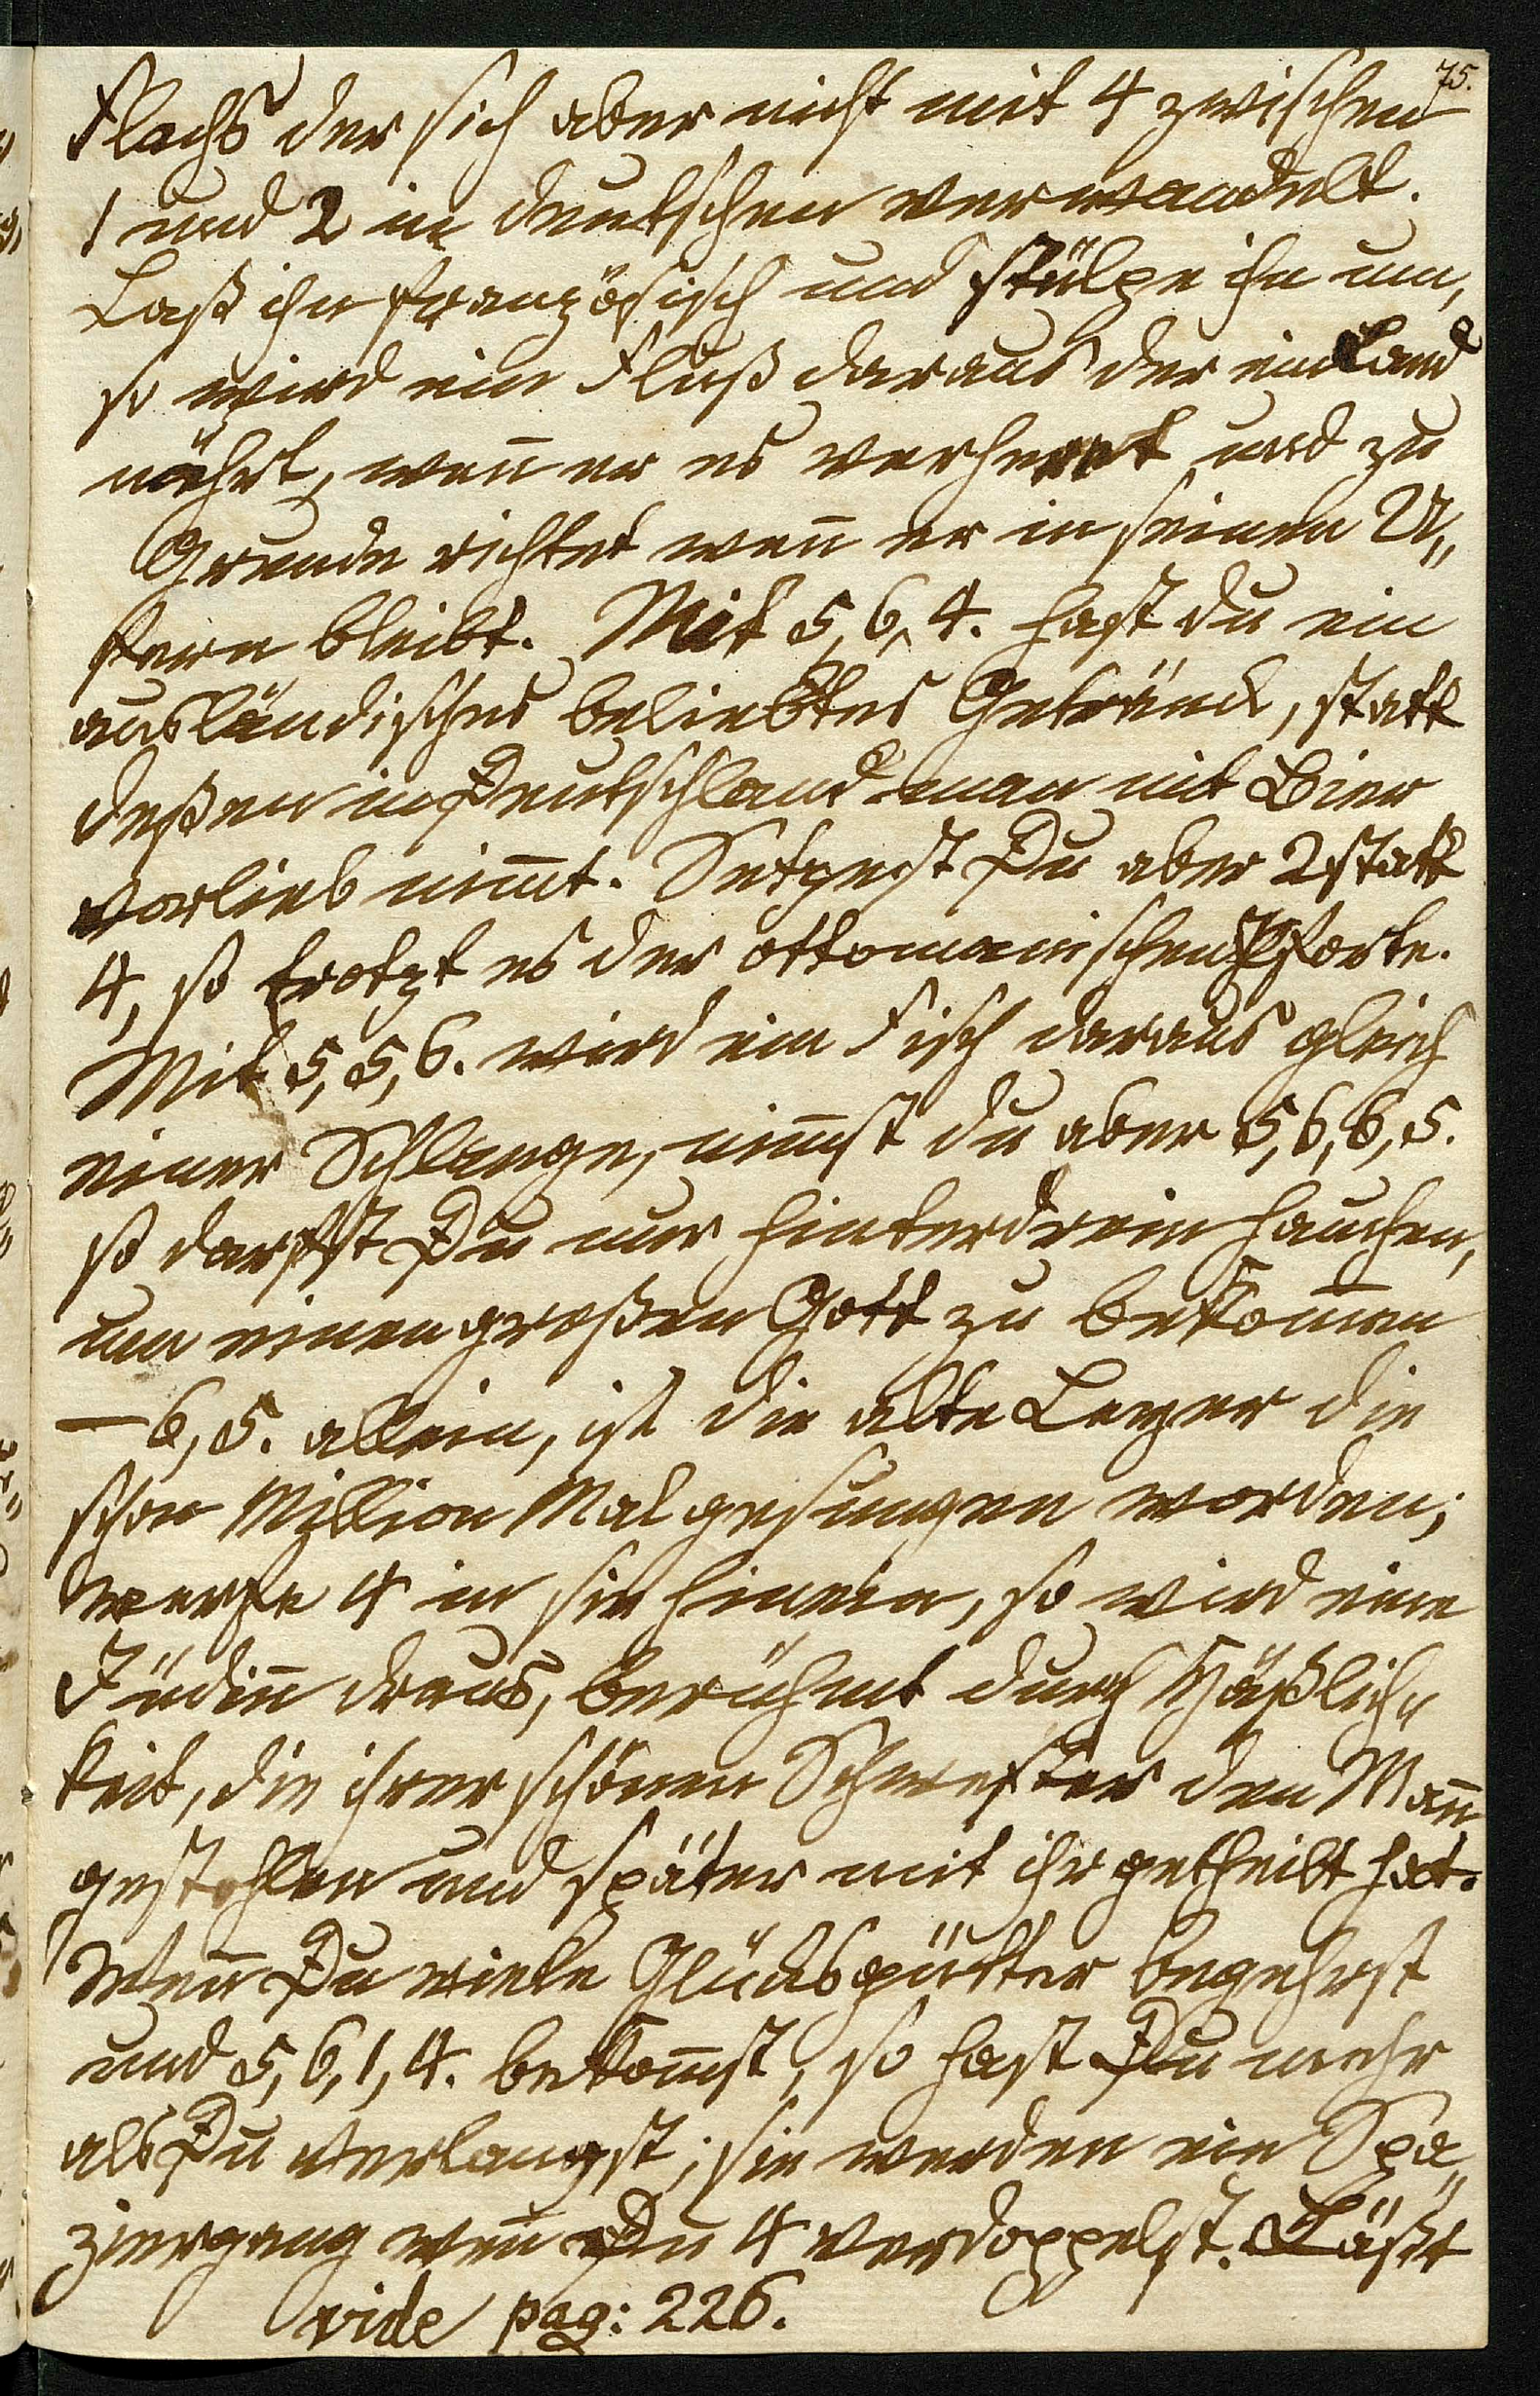 75.
Flachs der sich aber nicht mit 4 zwischen
1 und 2 in deutschen verwandelt.
Laß ihn französisch und stülpe ihn um,
so wird ein Fluß daraus der ein Land
nährt, wen̄ er es verheert und zu
Grunde richtet wen̄ er in seinen U„
fern bleibt. Mit 5, 6, 4. hast du ein
ausländisches beliebtes Getränck, statt
deßen in Deutschland man mit Bier
vorlieb nim̄t. Setzest Du aber 2 statt
4, so trotzt es der ottomanischen Pforte.
Mit 5, 5, 6. wird ein Fisch daraus gleich
einer Schlange, nim̄st du aber 5, 6, 6, 5.
so darfst Du nur hinterdrein hauchen,
um einen großen Gott zu bekom̄en
— 6, 5. allein, ist die alte Leyer die
schon Million Mal gesungen worden;
werfe 4 in sie hinein, so wird eine
Jüdin̄ draus, berühmt durch Häßlich„
keit, die ihrer schönen Schwester den Man̄
gestohlen und später mit ihr getheilt hat.
Wen̄ Du viele Glücksgütter begehrst
und 5, 6, 1, 4. bekom̄st, so hast Du mehr
als Du verlangst; sie werden ein Spa„
ziergang wen̄ Du 4 verdoppelst. Läßt
vide pag: 226.